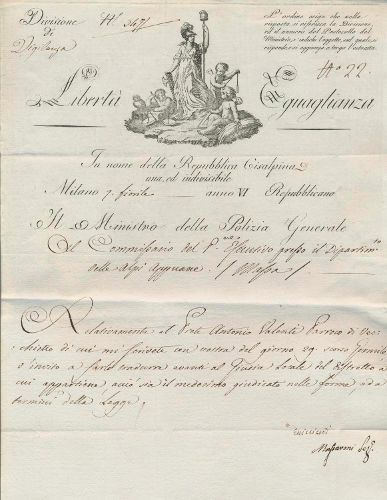 Divisione
di
Vigilanza
N.º 3471
L'ordine esige che nella
risposta si riferisca la Divisione,
ed il numero del Protocollo del
Ministro, e indichi l'oggetto, sul quale, e
rispondersi si
N.º 22.
Libertà Eguaglianza
In nome della Repubblica Cisalpina
una, ed indivisibile
Milano 7. fiorile anno VI Repubblicano
Il Ministro della Polizia Generale
Al Commissario del P. Esecutivo presso il Dipartim.to
delle Alpi Appuane. / Massa /
Relativamente al Prete Antonio Valenti Parroco di Vec-
chietto di cui mi scrivete con vostra del giorno 29. scorso Germile
a farlo tradurre avanti al Giudice Locale del Distretto a
cui appartiene, acciò sia il medesimo giudicato nelle forme, ed a
termini della Legge.